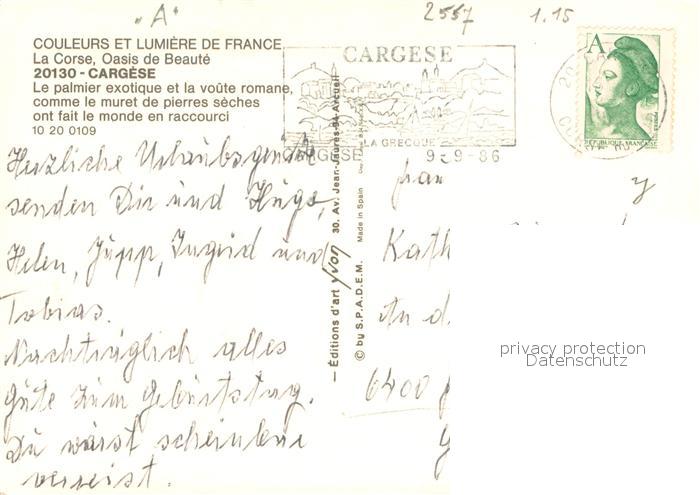 "A"
2557
1.15
COULEURS ET LUMIÈRE DE FRANCE
La Corse, Oasis de Beauté
20130 - CARGÈSE
Le palmier exotique et la voûte romane,
comme le muret de pierres sèches
ont fait le monde en raccourci
10 20 0109
CARGESE
LA GRECQUE
CARGESE
9-9-86
A
REPUBLIQUE FRANCAISE
Herzliche Urlaubsgrüße
senden Dir und Hugo,
Helen, Jupp, Ingrid und
Tobias.
Nachträglich alles
Gute zum Geburtstag.
Du warst scheinbar
verreist.
— Editions d'art yvon 30. Av. Jean-Jaurès-94-Arcueil
© by S.P.A.D.E.M. Made in Spain
Frau
Kath
An d
6400
privacy protection
Datenschutz